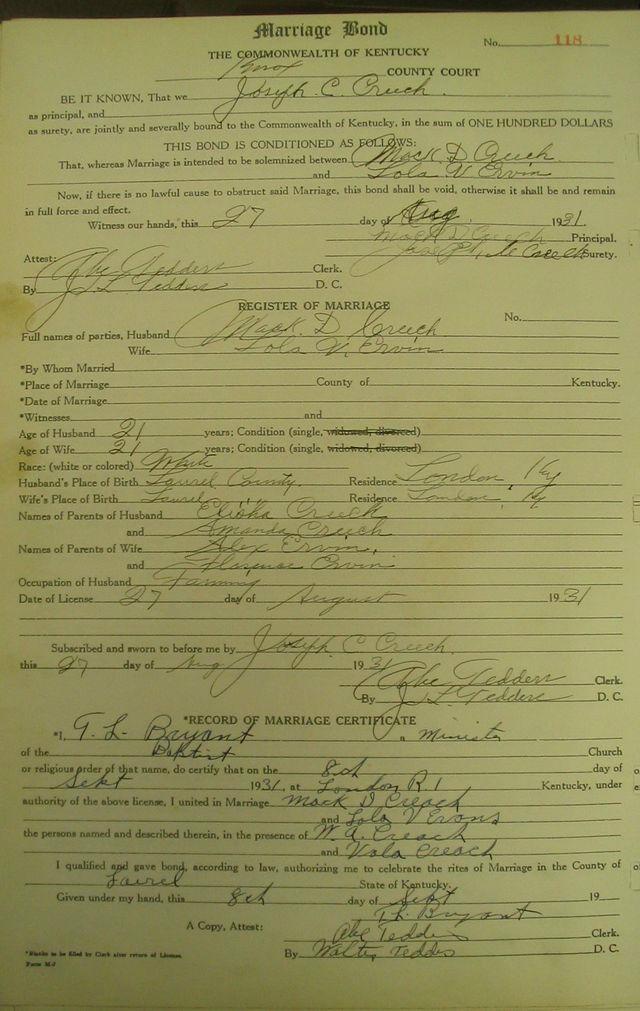 Marriage Bond
No. 118
THE COMMONWEALTH OF KENTUCKY
Knox COUNTY COURT
BE IT KNOWN, That we Joseph C. Creech.
as principal, and
as surety, are jointly and severally bound to the Commonwealth of Kentucky, in the sum of ONE HUNDRED DOLLARS
THIS BOND IS CONDITIONED AS FOLLOWS:
That, whereas Marriage is intended to be solemnized between Mack D Creech
and Lola V. Ervin
Now, if there is no lawful cause to obstruct said Marriage, this bond shall be void, otherwise it shall be and remain
in full force and effect.
Witness our hands, this 27 day of Aug 1931.
Mack D Creech Principal.
Creech Surety.
Attest:
Abe Tedders Clerk.
By J. L. Tedders D. C.
REGISTER OF MARRIAGE
No.
Full names of parties, Husband Mack D. Creech
Wife Lola V. Ervin
*By Whom Married
*Place of Marriage County of Kentucky.
*Date of Marriage
*Witnesses and
Age of Husband 21 years; Condition (single, widowed, divorced)
Age of Wife 21 years; Condition (single, widowed, divorced)
Race: (white or colored) White
Husband's Place of Birth Laurel County. Residence London, Ky
Wife's Place of Birth Laurel " " Residence London, Ky
Names of Parents of Husband Elisha Creech
and Amanda Creech
Names of Parents of Wife Alex Ervin,
and Florence Ervin
Occupation of Husband Farming
Date of License 27 day of August 1931
Subscribed and sworn to before me by Joseph C Creech.
this 27 day of Aug 1931
Abe Tedders Clerk.
By J. L. Tedders D. C.
*RECORD OF MARRIAGE CERTIFICATE
*I, T. L. Bryant a Minister
of the Baptist Church
or religious order of that name, do certify that on the 8th day of
Sept 1931, at London R. 1 Kentucky, under
authority of the above license, I united in Marriage Mack D Creach
and Lola V Evans
the persons named and described therein, in the presence of W. A. Creach
and Vola Creach
I qualified and gave bond, according to law, authorizing me to celebrate the rites of Marriage in the County of
Laurel State of Kentucky.
Given under my hand, this 8th day of Sept 19
T. L. Bryant
A Copy, Attest: Abe Tedders Clerk.
By Walter Teddes D. C.
*Blanks to be filled by Clerk after return of License.
Form M-7